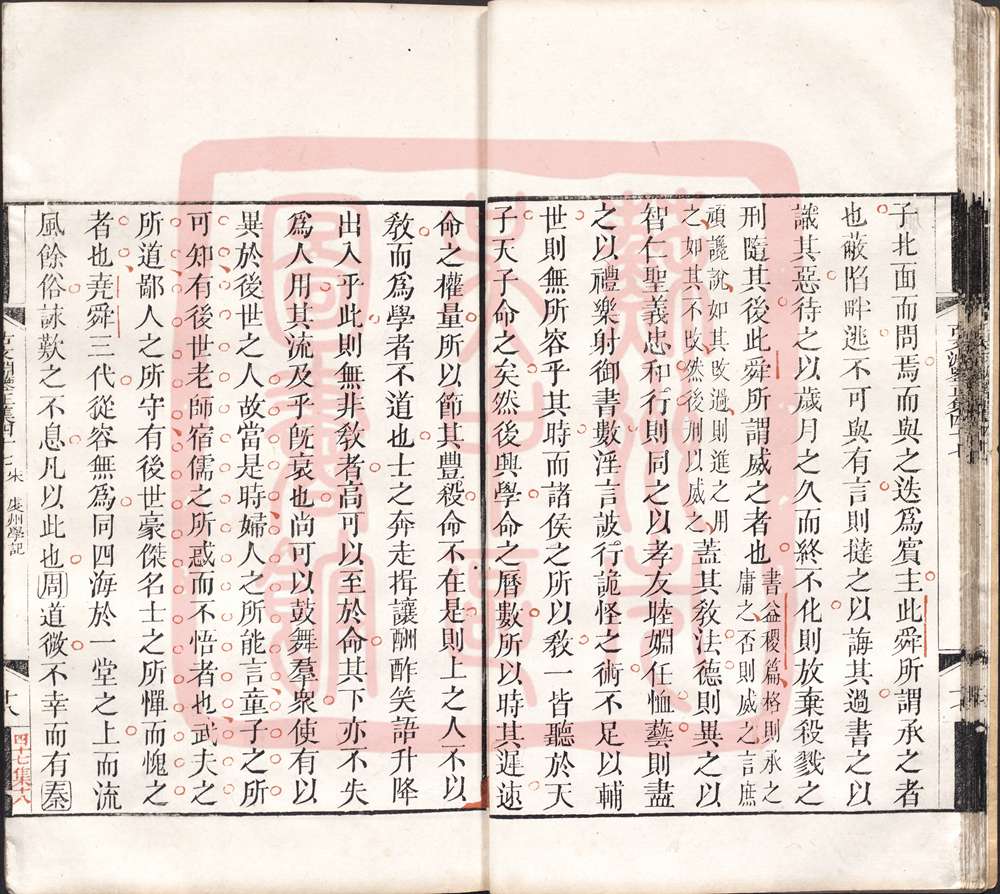 子北面而問焉而與之迭爲賓主此舜所謂承之者
也蔽陷畔逃不可與有言則撻之以誨其過書之以
識其惡待之以歲月之久而終不化則放棄殺戮之
刑隨其後此舜所謂威之者也
書益稷篇格則承之
庸之否則威之言庶
頑讒說如其改過則進之用
之如其不改然後刑以威之
蓋其敎法德則異之以
智仁聖義忠和行則同之以孝友睦婣任恤藝則盡
之以禮樂射御書數淫言詖行詭怪之術不足以輔
世則無所容乎其時而諸侯之所以敎一皆聽於天
子天子命之矣然後興學命之曆數所以時其遲速
命之權量所以節其豐殺命不在是則上之人不以
敎而爲學者不道也士之奔走揖讓酬酢笑語升降
出入乎此則無非敎者高可以至於命其下亦不失
爲人用其流及乎旣衰也尚可以鼓舞羣衆使有以
異於後世之人故當是時婦人之所能言童子之所
可知有後世老師宿儒之所惑而不悟者也武夫之
所道鄙人之所守有後世豪傑名士之所憚而愧之
者也堯舜三代從容無爲同四海於一堂之上而流
風餘俗詠歎之不息凡以此也周道微不幸而有秦
宋
虔州學記
十八
四十七集十八